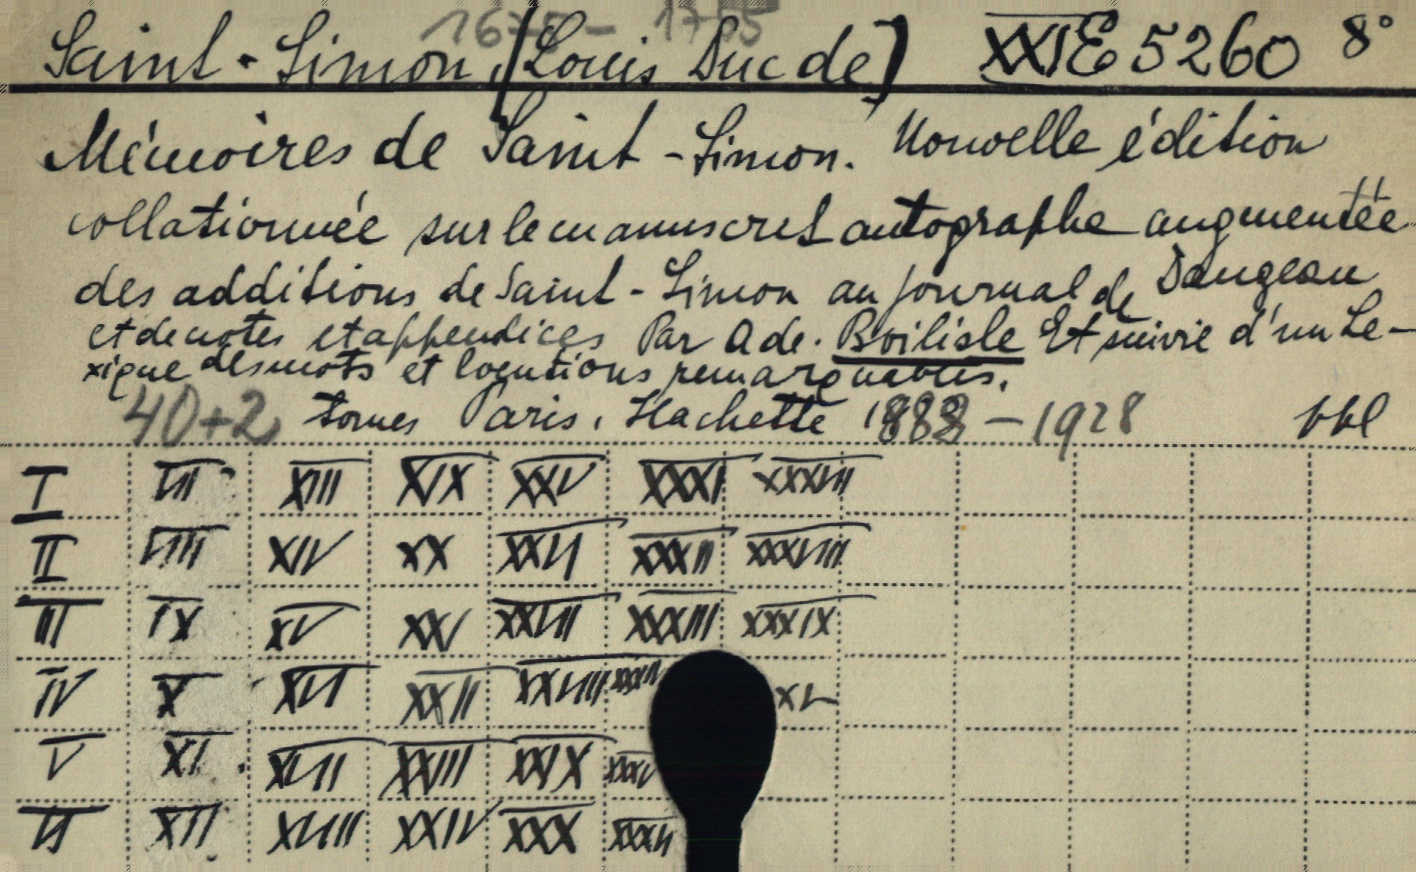 1675-1755
Saint-Simon, [Louis Duc de] XXIE 5260 8°
Mémoires de Saint-Simon. Nouvelle édition
collationnée sur le manuscrit autographe augmentée
des additions de Saint-Simon au journal de Dangeau
et de notes et appendices Par A de. Boilisle Et suivie d'un Le-
xique des mots et locutions remarquables.
40+2 tomes Paris, Hachette 1882-1928
I VII XIII XIX XXV XXXI XXXVII
II VIII XIV XX XXVI XXXII XXXVIII
III IX XV XXI XXVII XXXIII XXXIX
IV X XVI XXII XXVIII XL
V XI XVII XXIII XXIX
VI XII XVIII XXIV XXX